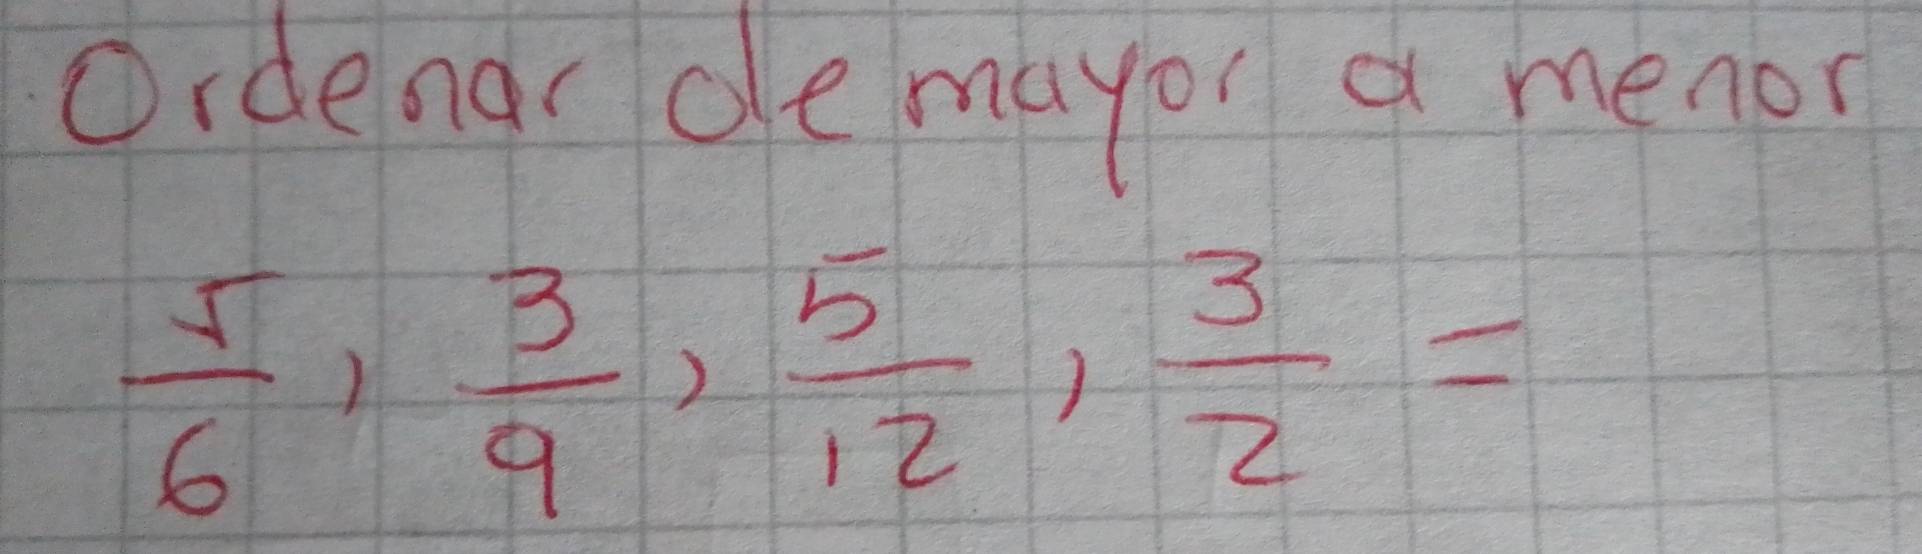 Ordenar de mayor a menor
5/6, 3/9, 5/12, 3/2 =